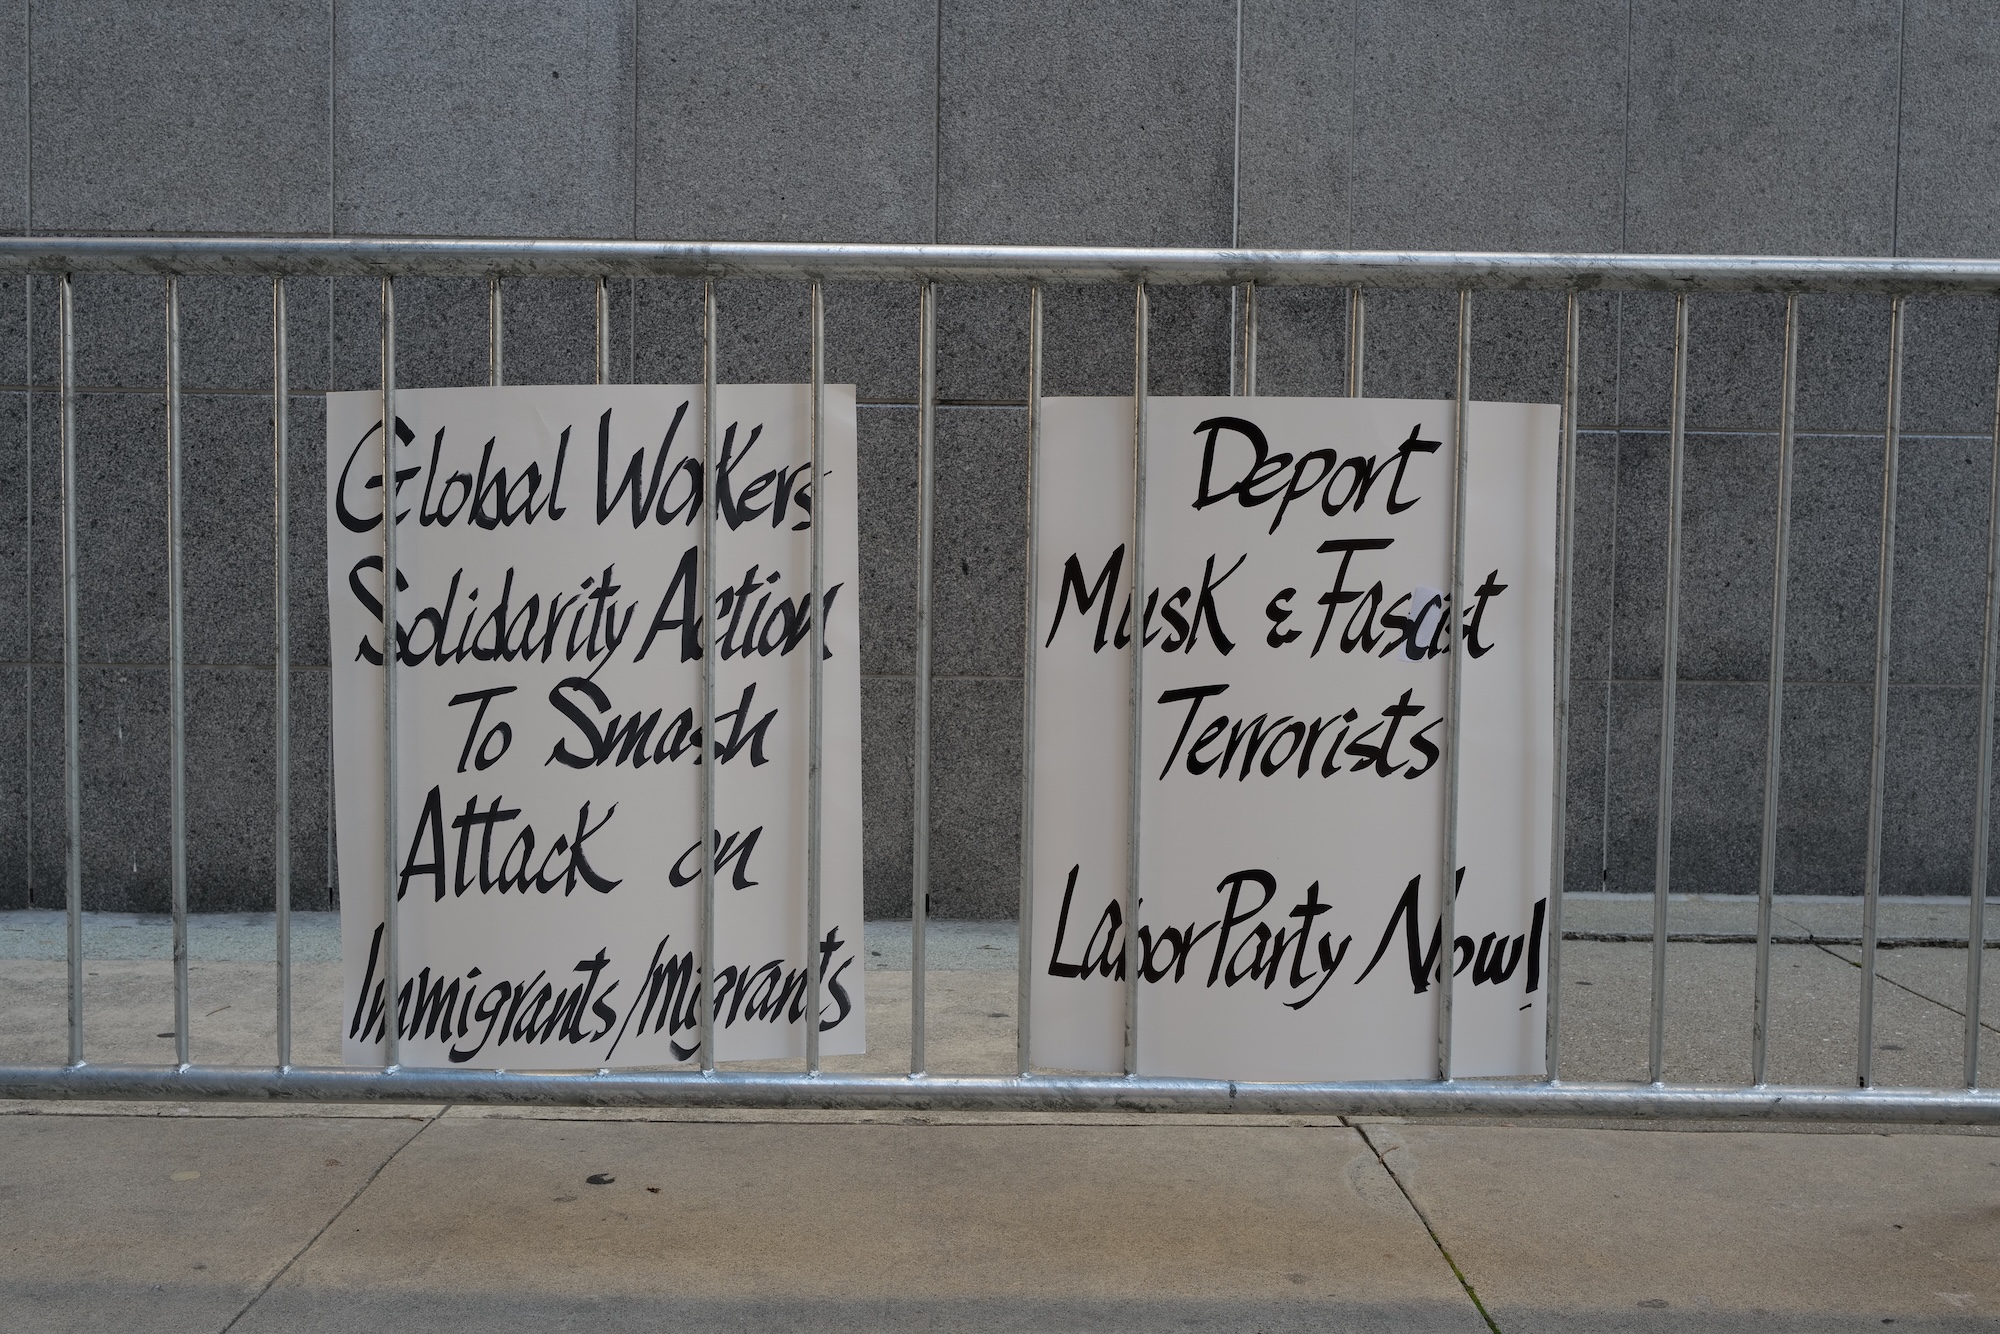 Global Workers
Solidarity Action
To Smash
Attack on
Immigrants/migrants
Deport
Musk & Fascist
Terrorists
Labor Party Now!